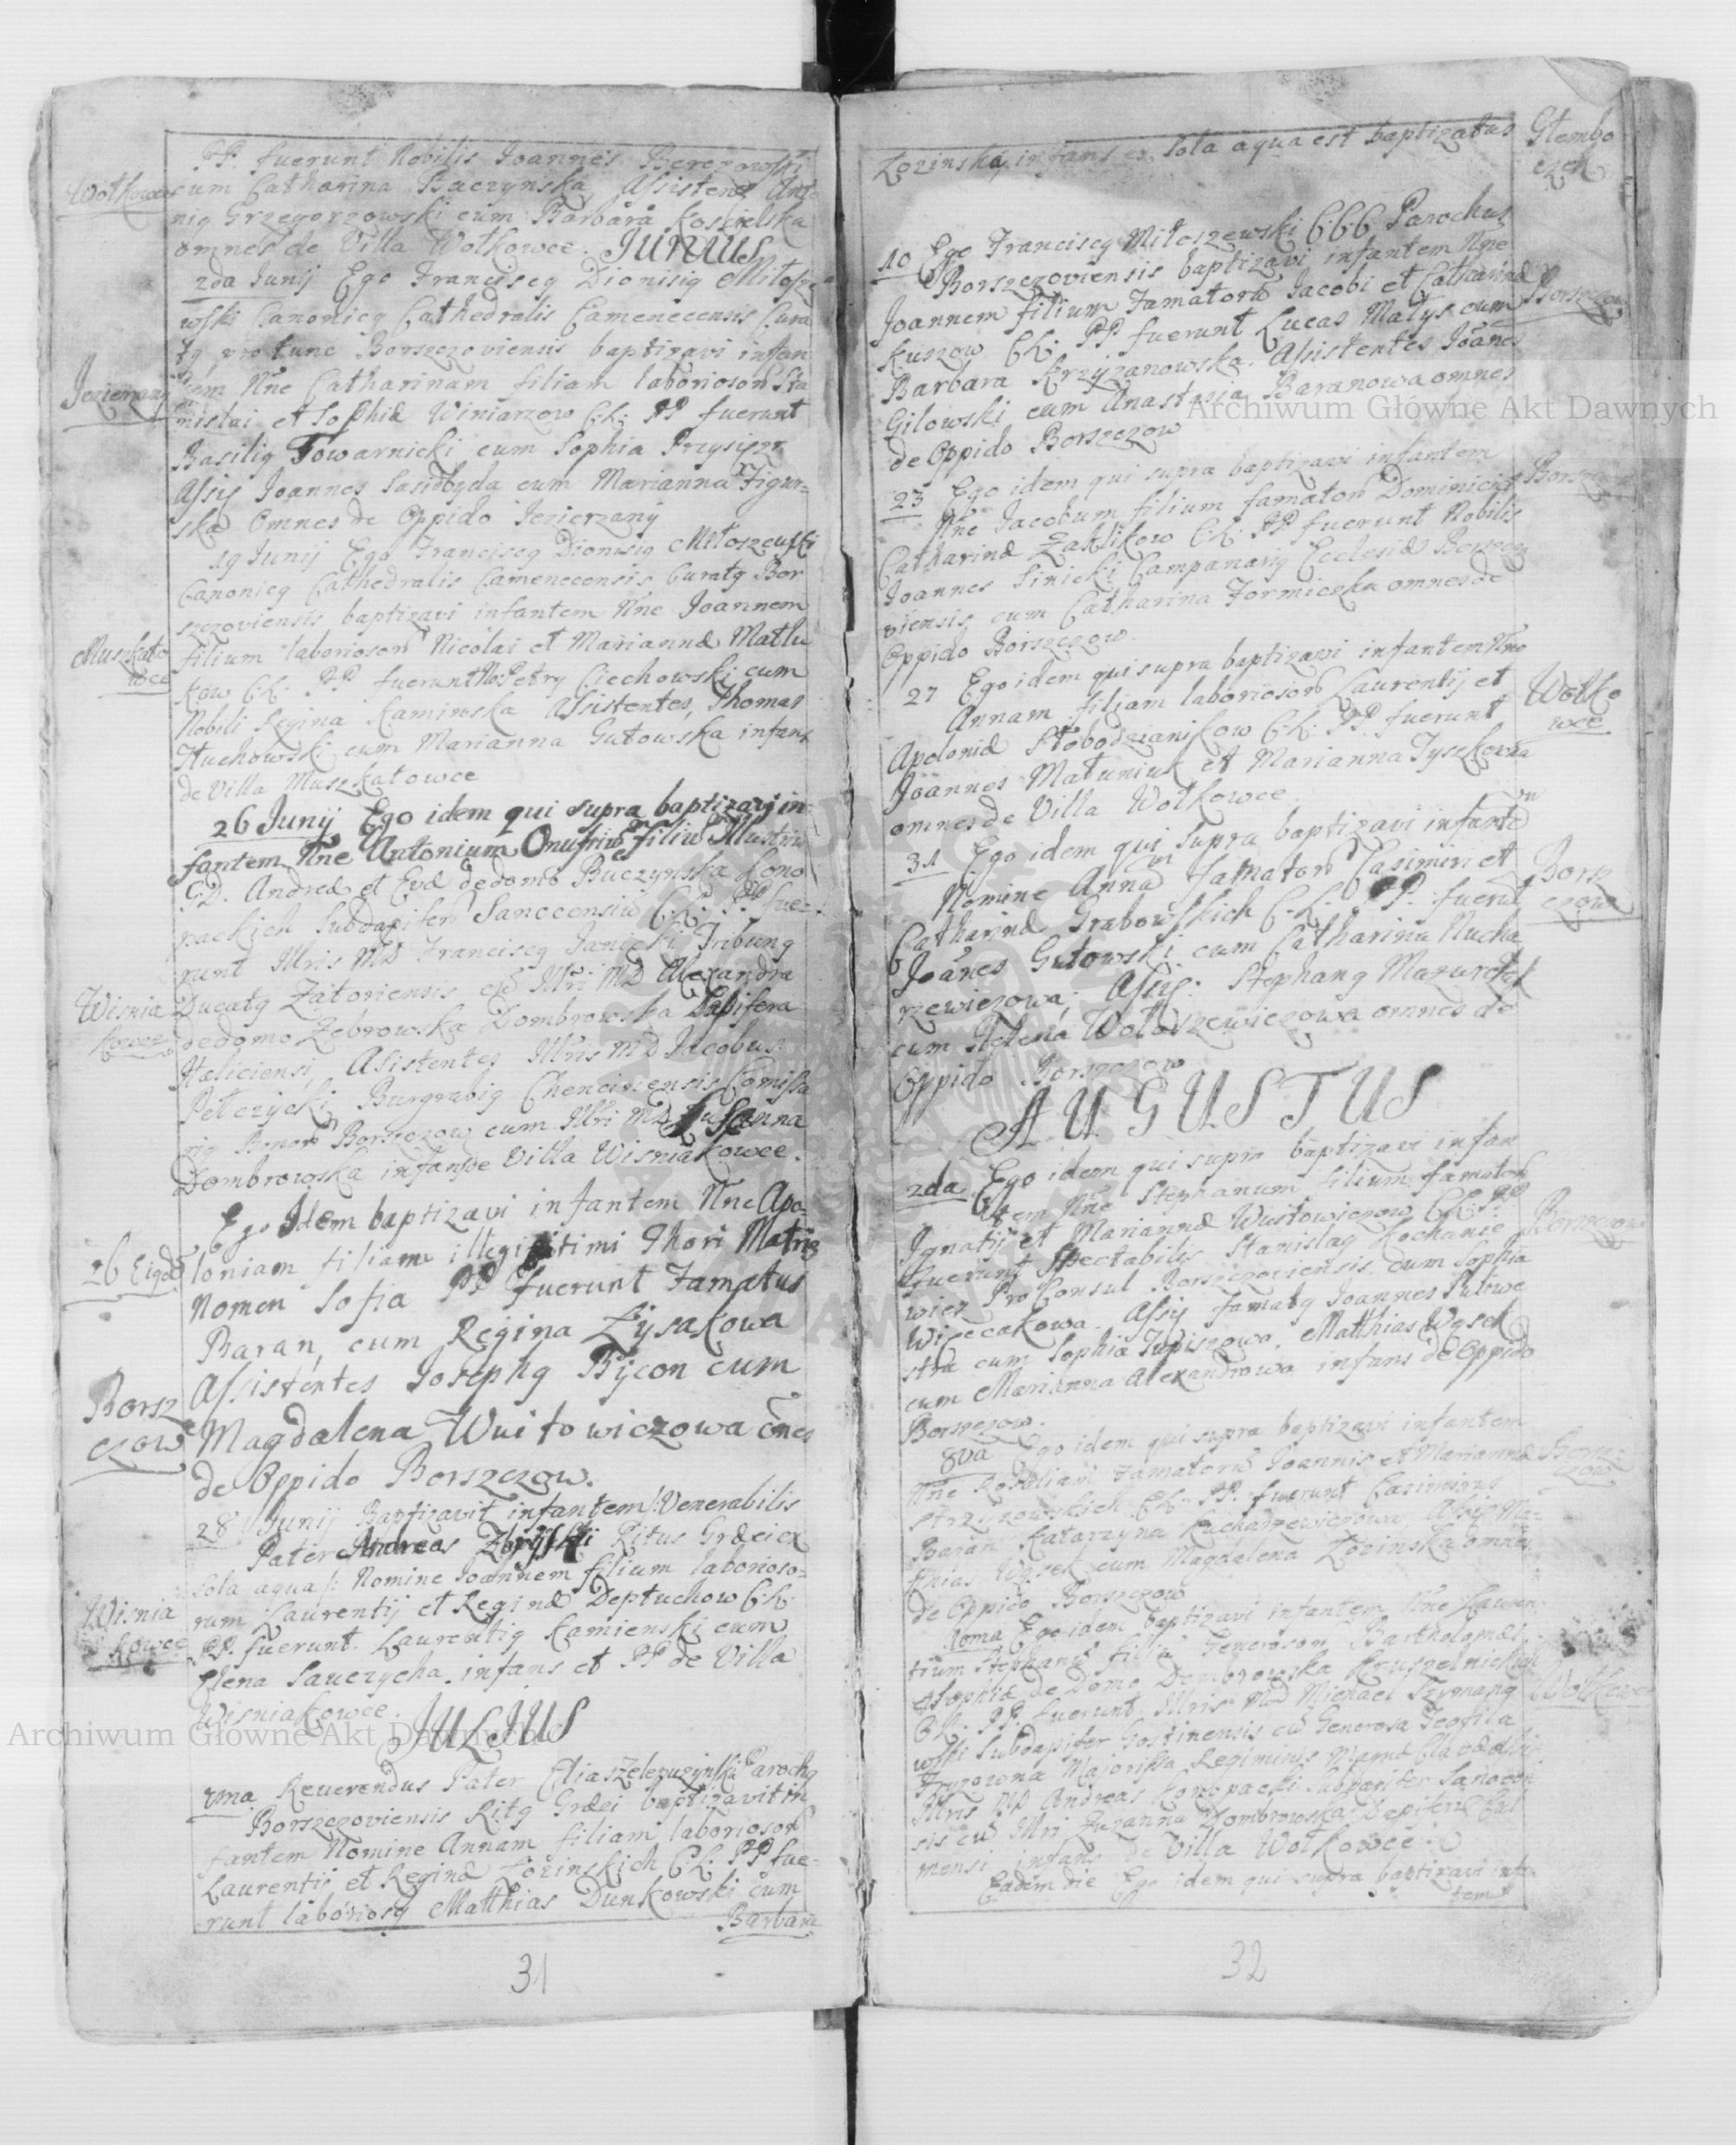 PP. fuerunt Nobilis Joannes Berezowski
Wołkowce
cum Catharina Baczynska, Assisten Anto
nig Grzegorzowski cum Barbara Koscielska
omnes de Villa Wołkowce. JUNIUS
2da Junij Ego Franciscg Dionisig Miłosze
wski Canonicg Cathedralis Camenecensis Cura
tg pro tunc Borszczoviensis baptizavi infan
Jezierzany
tem Nne Catharinam filiam laborioson Sta
nislai et Sophiæ Winiarzow C.L: PP fuerunt
Basilig Towarnicki cum Sophia
Assis Joannes cum Marianna Figur=
ska Omnes de Oppido Jezierzany
19 Junij Ego Franciscg Dionisig Miłoszewski
Canonicg Cathedralis Camenecensis Curatg Bor
szczoviensis baptizavi infantem Nne Joannem
Muszkato
wce
filium laborioson Nicolai et Mariannæ Matlu
kow C.L: PP fuerunt Petrg Ciechowski cum
Nobili Regina Kaminska Assistentes, Thomas
Huchowski cum Marianna Gutowska infans
de Villa Muszkatowce
26 Junij Ego idem qui supra baptizavi in
fantem Nne Antonium Onufriu filiu Illustriu
G.D. Andreæ et Evæ de domo Buczynska Kono
packich Subdapifero Sanocensiu C.L: PP fue=
runt Illris MD Franciscg Janicki Tribung
Wisnia
kowce
Ducatg Zatoriensis cu Illri MD Alexandra
de domo Zebrowska Dombrowska Dapifera
Haliciensi, Asistentes Illris MD Jacobus
Pełczycki Burgrabig Chencinensis Comissa
rig Bonor Borszczow cum Illri MD Susanna
Dombrowska infans de Villa Wisniakowce.
26 Eigde
Ego Idem baptizavi infantem Nne Apo-
loniam filiam illegitimi Thori Matris
Nomen Sofia PP Fuerunt Famatus
Baran, cum Regina Zysakowa
Borsz
czow
Assistentes Josephg Bycon cum
Magdalena Wuitowiczowa omes
de Oppido Borszczow.
28 Junij Baptizavit infantem/: Venerabilis
Pater Andreas Ritus Græci ex
Sola aqua/: Nomine Joannem filium laborioso=
Wisnia
kowce
rum Laurentij et Reginæ Deptuchow C.L:
PP. fuerunt Laurentig Kamienski cum
Elena Sawczycha infans et PP de Villa
Wisniakowce.
JULIUS
7ma Reverendus Pater Parochg
Borszczoviensis Ritg Græci baptizavit in
fantem Nomine Annam filiam laborioson
Laurentij et Reginæ Łozinskich C.L: PP fue=
runt laboriosg Matthias Dunkowski cum
Barbara
31
Łozinska, infans ex Sola aqua est baptizatus
Głembo
czek
10 Ego Franciscg Miłoszewski C.C.C. Parochus
Borszczoviensis baptizavi infantem Nne
Joannem filium Famatorū Jacobi et Catharinæ
Borszczow
Kuszow C.L: PP fuerunt Lucas Matys cum
Barbara Krzyzanowska. Assistentes Joanes
Gilowski cum Anastasia Baranowa omnes
de Oppido Borszczow
23 Ego idem qui supra baptizavi infantem
Borszczow
Nne Jacobum filium famator Dominici et
Catharinæ Zaklikow C.L: PP fuerunt Nobilis
Joannes Sinicki Campanarig Ecclesiæ Borszczo
viensis cum Catharina Formiczka omnes de
Oppido Borszczow.
27 Ego idem qui supra baptizavi infantem Nne
Annam filiam laborioson Laurentij et
Wołko
wce
Apoloniæ Słobodzianikow C.L: PP. fuerunt
Joannes Matuniuk et Marianna Tyszkowa
omnes de Villa Wołkowce.
31 Ego idem qui supra baptizavi infante
Borsz
czow
Nomine Anna Famator Casimiri et
Catharinæ Grabowskich C.L: PP. fuerut
Joanes Gutowski cum Catharina Kucha
rzewiczowa; Assis: Stephang Mazurchek
cum Helena Wołoszewiczowa omnes de
Oppido Borszczow
AUGUSTUS
2da Ego idem qui supra baptizavi infan
tem Nne Stephanum filium famator
Borszczow
Ignatij et Mariannæ Wuitowiczow C.L: PP
fuerunt Spectabilis Stanislag Kochanie
wicz ProConsul Borszczoviensis cum Sophia
Assis famatg Joannes
stra cum Sophia Matthias Wąsek
cum Marianna Alexandrowa infans de Oppido
Borszczow.
8va Ego idem qui supra baptizavi infantem
Borsz=
czow
Nne Rosaliam Famatorū Joannis et Mariannæ
Strzyzowskich C.L: PP. fuerunt Casimirus
Baran Katarzyna Kucharzewiczowa, Assis Ma=
thias Wąsek cum Magdalena Łozinska omnes
de Oppido Borszczow
10ma Ego idem baptizavi infantem Nne Lauren
tium Stephanu filiu Generoson Bartholomæi
Wołkowce
et Sophiæ de Domo Dembrowska Kruszelnickich
C.L. PP. fuerunt Illris MD Michael Szymang
wski Subdapifer Gostinensis cū Generosa Teofila
Majorissa Regiminis
Illris MD Andreas Konopacki Subdapifer Sanocen
sis cū Illri Zuzanna Dombrowska Dapifera Hal
mensi infans de Villa Wołkowce.
Eadem die Ego idem qui supra baptizavi infa
tem
32
Archiwum Główne Akt Dawnych
Archiwum Główne Akt Dawnych